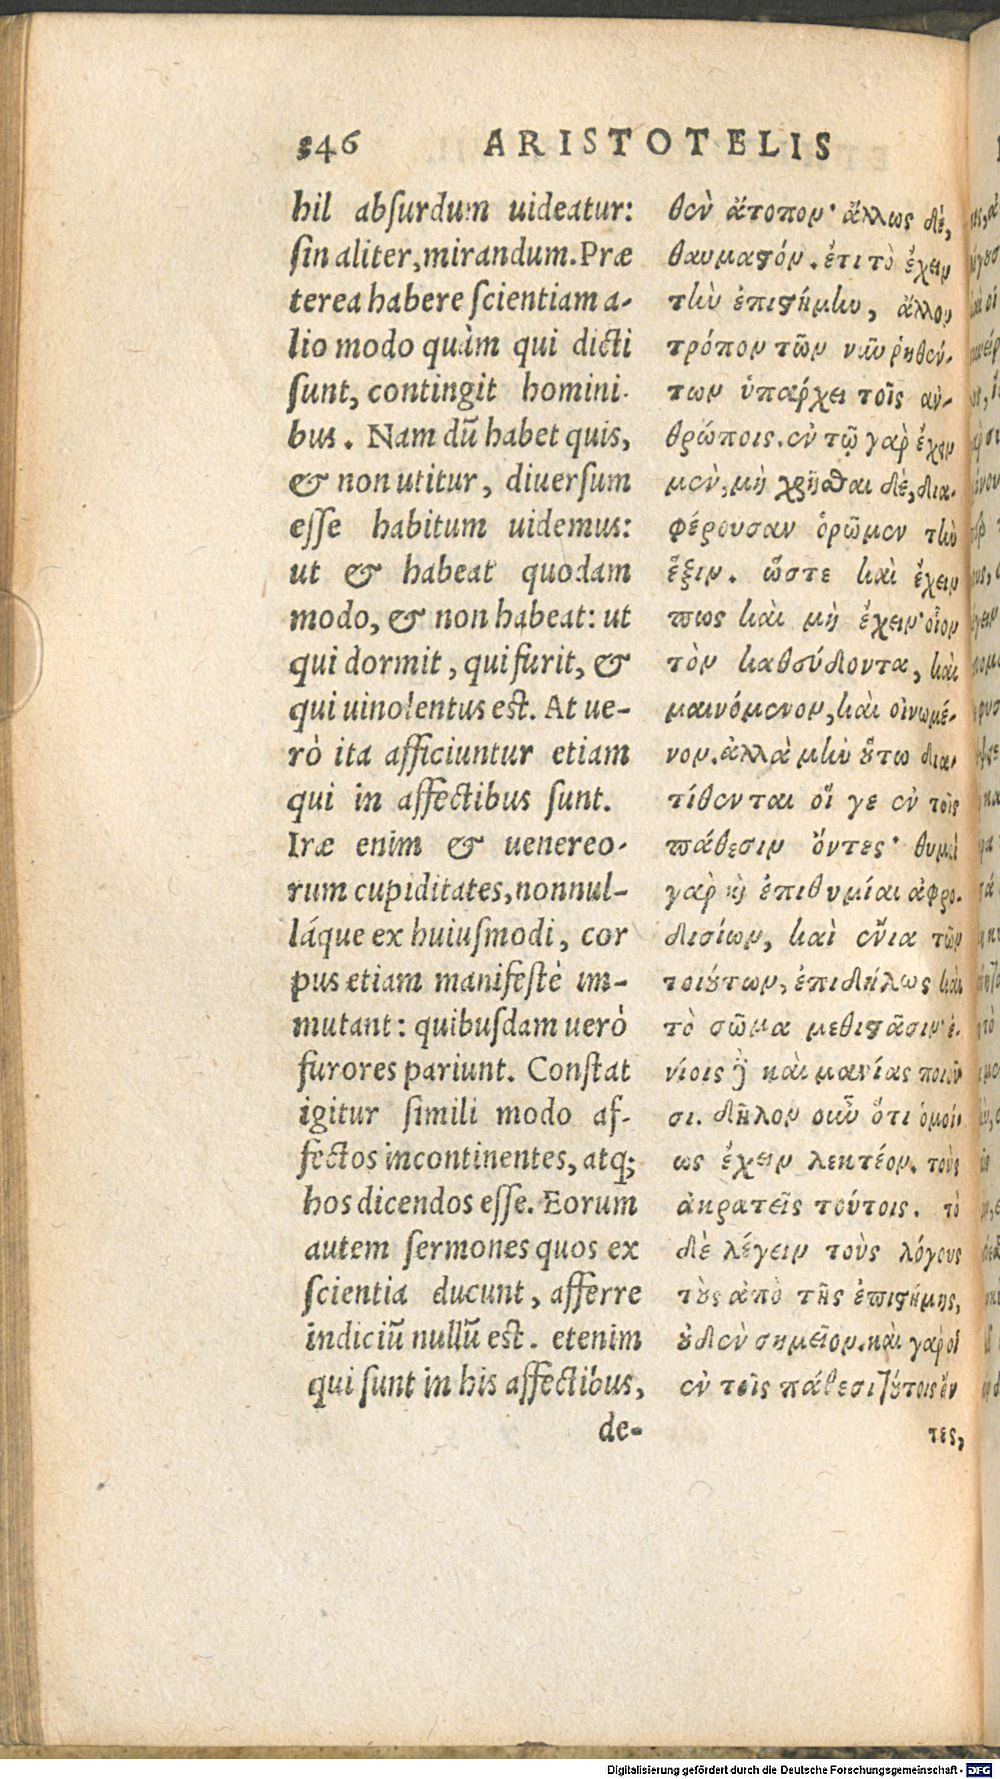 346 ARISTOTELIS
hil absurdum uideatur:
sin aliter, mirandum. Præ
terea habere scientiam a-
lio modo quàm qui dicti
sunt, contingit homini-
bus. Nam dū habet quis,
& non utitur, diuersum
esse habitum uidemus:
ut & habeat quodam
modo, & non habeat: ut
qui dormit, qui furit, &
qui uinolentus est. At ue-
rò ita afficiuntur etiam
qui in affectibus sunt.
Iræ enim & uenereo-
rum cupiditates, nonnul-
láque ex huiusmodi, cor
pus etiam manifestè im-
mutant: quibusdam uerò
furores pariunt. Constat
igitur simili modo af-
fectos incontinentes, atq;
hos dicendos esse. Eorum
autem sermones quos ex
scientia ducunt, afferre
indiciū nullū est. etenim
qui sunt in his affectibus,
de-
θὲν ἄτοπον· ἄλλως δὲ,
θαυμαστόν. ἔτι τὸ ἔχειν
τὴν ἐπιστήμην, ἄλλον
τρόπον τῶν νῦν ῥηθέν-
των ὑπάρχει τοῖς ἀν-
θρώποις. ἐν τῷ γὰρ ἔχειν
μὲν, μὴ χρῆσθαι δὲ, δια-
φέρουσαν ὁρῶμεν τὴν
ἕξιν. ὥστε καὶ ἔχειν
πως καὶ μὴ ἔχειν· οἷον
τὸν καθεύδοντα, καὶ
μαινόμενον, καὶ οἰνωμέ-
νον. ἀλλὰ μὴν ὅτω δια-
τίθενται οἵ γε ἐν τοῖς
πάθεσιν ὄντες· θυμοὶ
γὰρ καὶ ἐπιθυμίαι ἀφρο-
δισίων, καὶ ἔνια τῶν
τοιούτων, ἐπιδήλως καὶ
τὸ σῶμα μεθιστᾶσιν· ἐ-
νίοις δὲ καὶ μανίας ποιοῦ
σι. δῆλον οὖν ὅτι ὁμοί-
ως ἔχειν λεκτέον. τοὺς
ἀκρατεῖς τούτοις. τὸ
δὲ λέγειν τοὺς λόγους
τοὺς ἀπὸ τῆς ἐπιστήμης,
οὐδὲν σημεῖον. καὶ γὰρ οἱ
ἐν τοῖς πάθεσι τούτοις ὄν
τες,
Digitalisierung gefördert durch die Deutsche Forschungsgemeinschaft - DFG